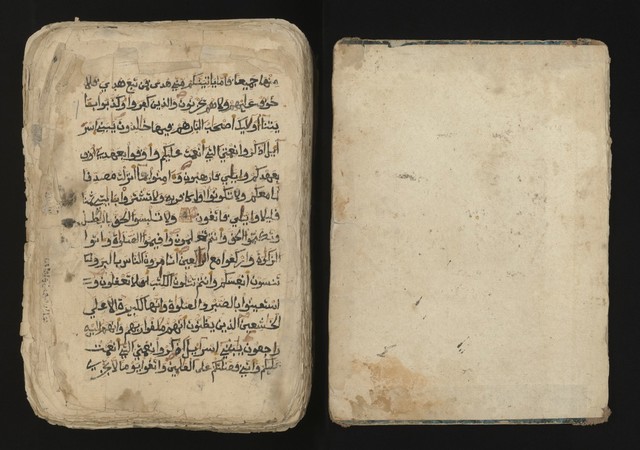 منها جميعا فاما ياتينكم مني هدى فمن تبع هداي فلا
خوف عليهم ولا هم يحزنون والذين كفروا وكذبوا بئا
يتنا أولايك أصحب النار هم فيها خالدون يبني إسر
ايل اذكروا نعمتي التي أنعمت عليكم وأوفوا بعهدي أوف
بعهدكم وإيي فارهبون وءامنوا بما أنزلت مصدقا
لما معكم ولا تكونوا أول كافر به ولا تشتروا بئايتي ثمنا
قليلا وإيي فاتقون ولا تلبسوا الحق بالبطل
وتكتموا الحق وأنتم تعلمون وأقيموا الصلوة وءاتوا
الزكوة واركعوا مع الراكعين أتامرون الناس بالبر و
تنسون أنفسكم وأنتم تتلون الكتب أفلا تعقلون و
استعينوا بالصبر والصلوة وإنها لكبيرة إلا على
الخشعين الذين يظنون أنهم ملقوا ربهم وأنهم إليه
راجعون يبني إسرايل اذكروا نعمتي التي أنعمت
عليكم وأني فضلتكم على العلمين واتقوا يوما لا تجزي